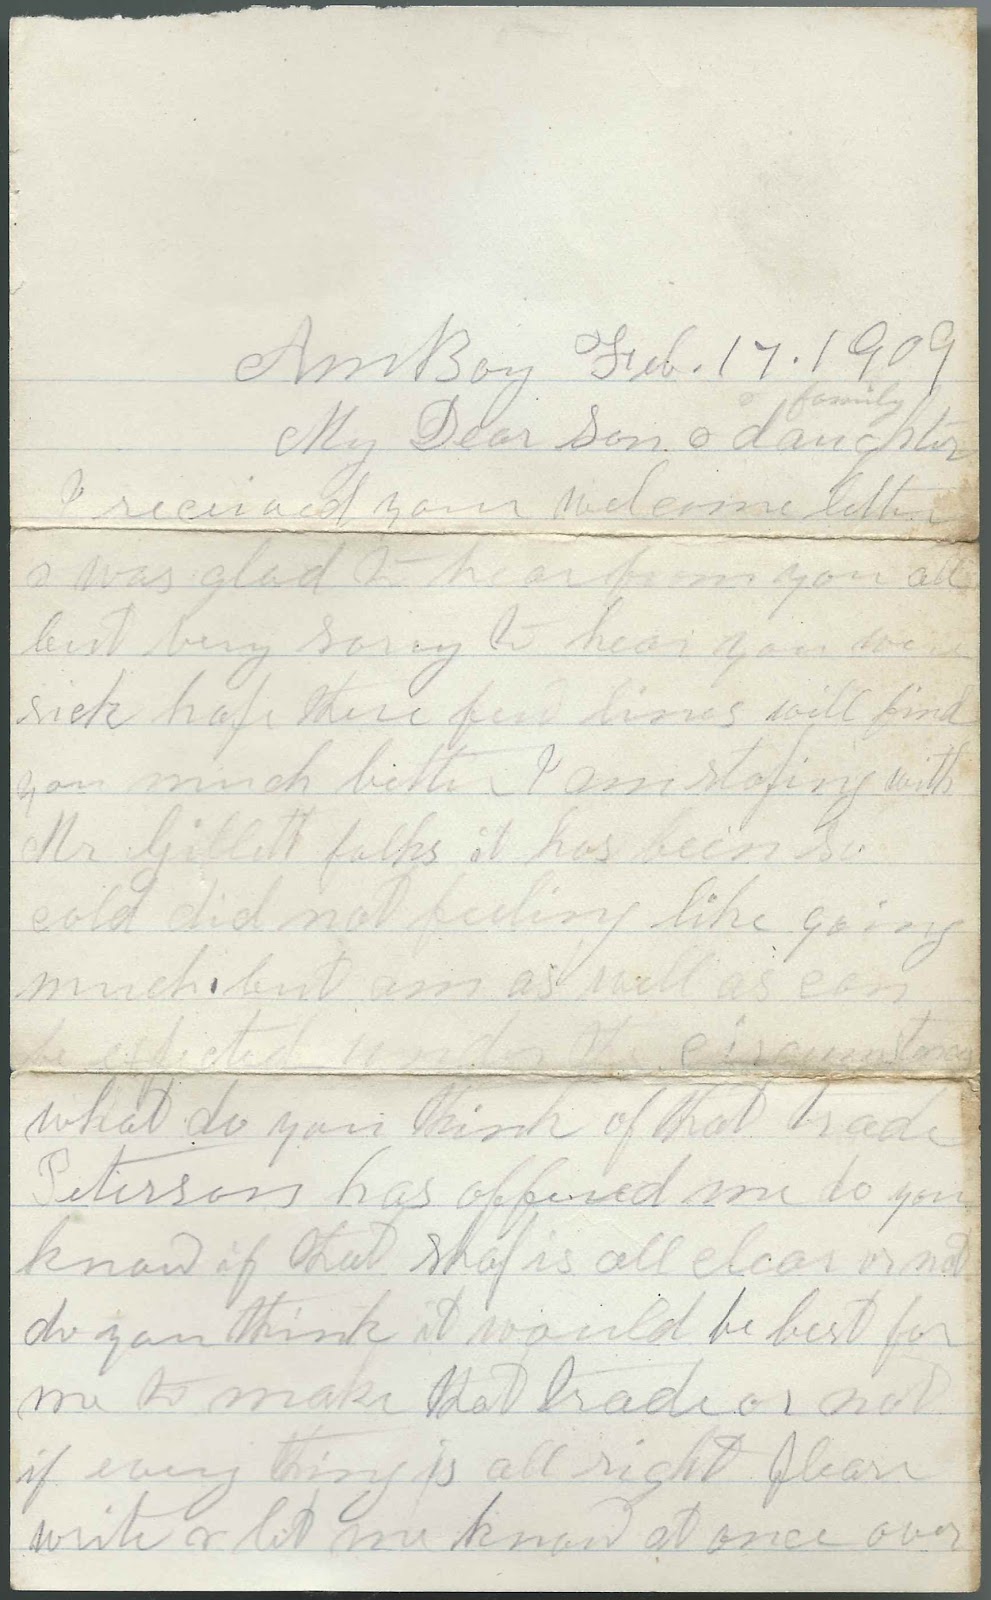 AmBoy Feb. 17. 1909
& family
My Dear Son & daughter
I received your welcome letter
& was glad to hear from you all
but very sorry to hear you were
sick hope these few lines will find
you much better I am stoping with
Mr Gillett folks it has been so
cold did not feeling like going
much. but am as well as can
be expected under the circumstances
what do you think of that trade
Peterson has offered me do you
know if that shop is all clear or not
do you think it would be best for
me to make that trade or not
if every thing is all right please
write & let me know at once over